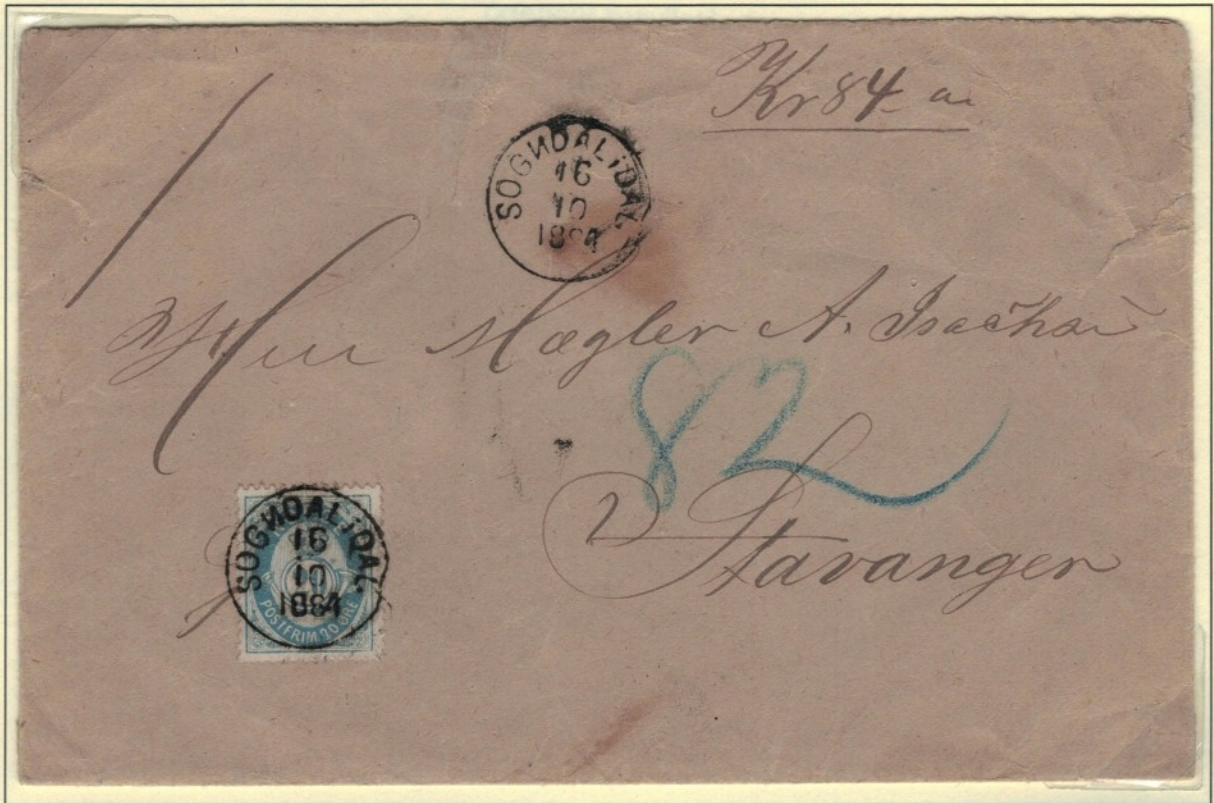 Kr 84
SOGNDAL i DAL.
16
10
1884
Herr Mægler A. Isachsen
82
Stavanger
SOGNDAL i DAL.
16
10
1884
POSTFRIM 20 ØRE